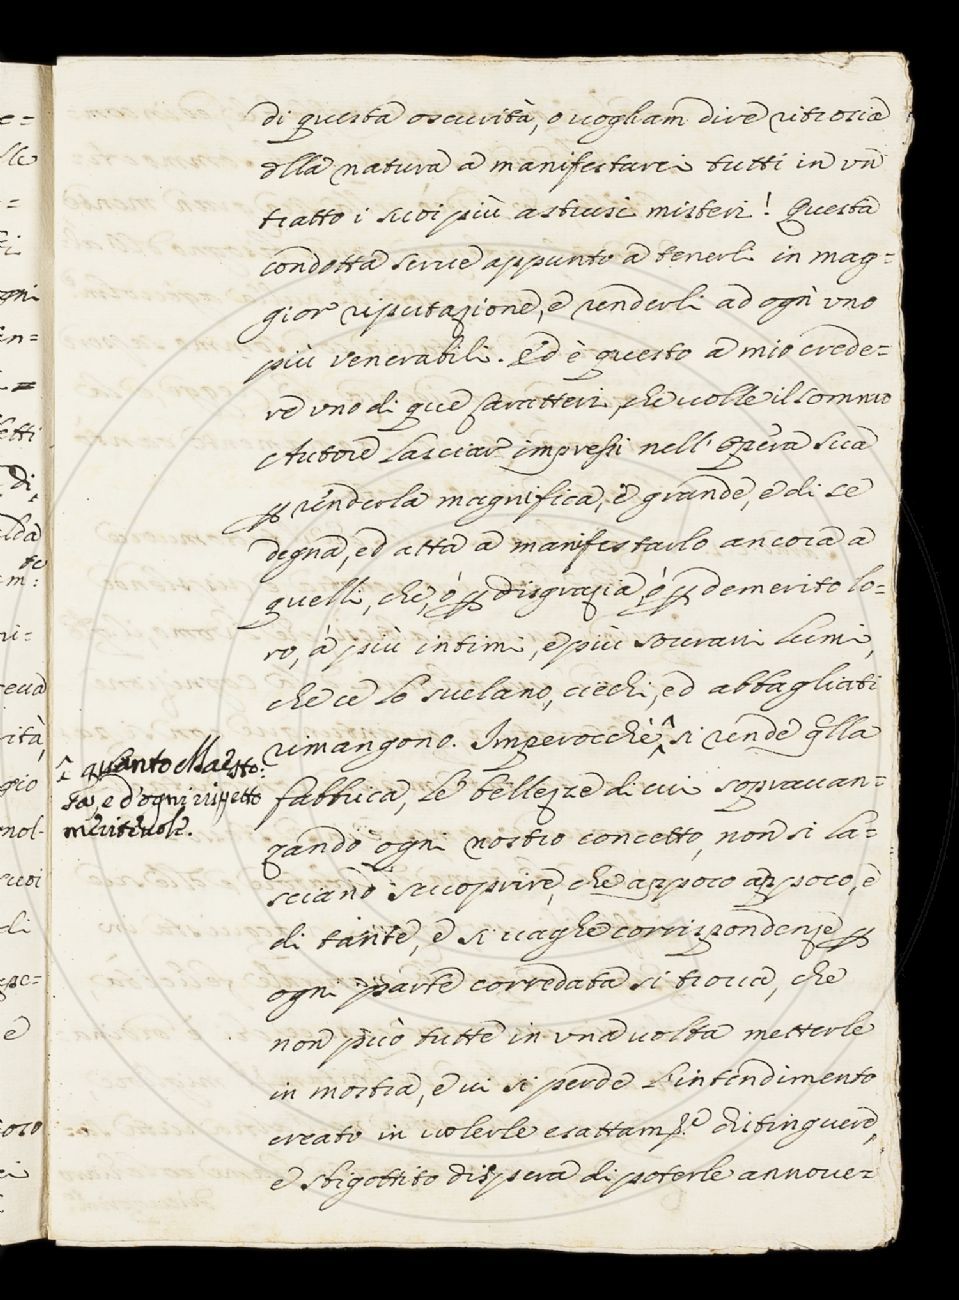 di questa oscurità, o vogliam dire ritrosia
dlla natura a manifestarci tutti in un
tratto i suoi più astrusi misteri! Questa
condotta serve appunto a tenerli in mag=
gior riputazione, e renderli ad ogni uno
più venerabili. Ed è questo a mio crede=
re uno di que caratteri, che volle il sommo
Autore lasciar impressi nell' opera sua
p renderla magnifica, e grande, e di se
degna, ed atta a manifestarlo ancora a
quelli, che, ò p disgrazia ò p demerito lo=
ro, à più intimi, e più sovrani lumi,
che ce lo svelano, ciechi, ed abbagliati
rimangono. Imperocchè ^ si rende qlla
^ quanto Maesto:
sa, e d'ogni rispetto
meritevole.
fabbrica, le bellezze di cui sopravan=
zando ogni nostro concetto, non si la=
sciano scoprire, che appoco appoco, e
di tante, e si vaghe corrispondenze p
ogni parte corredata si trova, che
non può tutte in una volta metterle
in mostra, e vi si perde l'intendimento
creato in volerle esattam.te distinguere,
e sbigottito dispera di poterle annove=